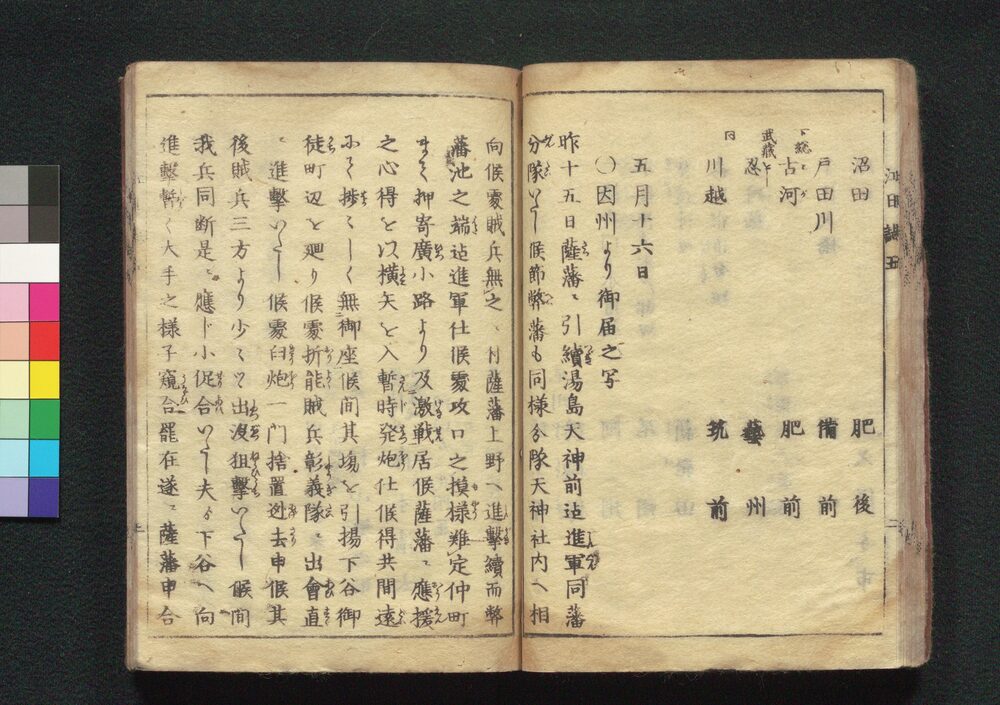 沼田 肥後
戸田川 備前
下総 古河 肥前
武蔵 忍 藝州
同 川越 筑前
五月十六日
〇因州より御届之写
昨十五日薩藩ニ引續湯島天神前迠進軍同藩
分隊いたし候節弊藩も同様分隊天神社内へ相
向候処賊兵無之ニ付薩藩上野へ進撃續而弊
藩池之端迠進軍仕候処攻口之摸様難定仲町
まで押寄廣小路より及激戦居候薩藩ニ應援
之心得を以横矢を入暫時発炮仕候得共間遠
にて捗々しく無御座候間其場を引揚下谷御
徒町辺を廻り候処折能賊兵彰義隊ニ出會直
ニ進撃いたし候処臼炮一門捨置迯去申候其
後賊兵三方より少々ツヽ出没狙撃いたし候間
我兵同断是ニ應じ小促合いたし夫ゟ下谷へ向
進撃暫く大手之様子窺合罷在遂ニ薩藩申合